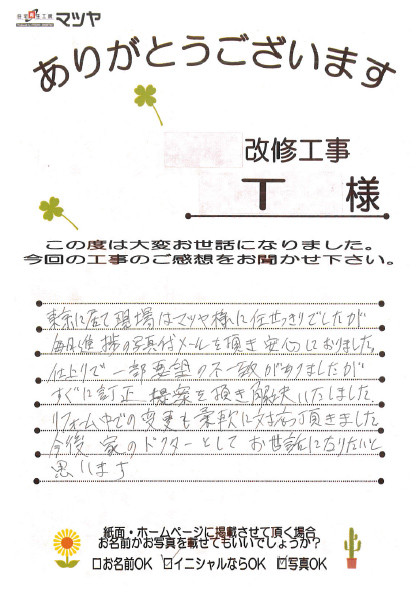 住宅再生工房 マツヤ
ありがとうございます
改修工事
T 様
この度は大変お世話になりました。
今回の工事のご感想をお聞かせ下さい。
東京に居て現場はマツヤ様に任せっきりでしたが
毎日進捗の写真付メールを頂き安心しておりました。
仕上りで一部要望の不一致がありましたが
すぐに訂正 提案を頂き解決いたしました。
リフォーム中での変更も柔軟に対応頂きました。
今後 家のドクターとして お世話になりたいと
思います
紙面・ホームページに掲載させて頂く場合
お名前かお写真を載せてもいいでしょうか？
□お名前OK ☑イニシャルならOK ☑写真OK